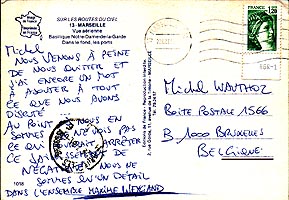 SUR LES ROUTES DU CIEL
13 - MARSEILLE
Vue aérienne
Basilique Notre-Dame-de-la-Garde
Dans le fond, les ports
Michel
NOUS VENONS À PEINE
DE NOUS QUITTER ET
J'AI ENCORE UN MOT
À AJOUTER À TOUT
CE QUE NOUS AVONS
DISCUTÉ
AU POINT OÙ NOUS EN
SOMMES JE NE VOIS PAS
CE QUI POURRAIT ARRÊTER
CE
NÉGATI NOUS NE
SOMMES QU'UN DÉTAIL
DANS L'ENSEMBLE MAXIME WEYGAND
1018
1,20
MICHEL WAUTHOZ
BOÎTE POSTALE 1566
B 1000 BRUXELLES
BELGIQUE